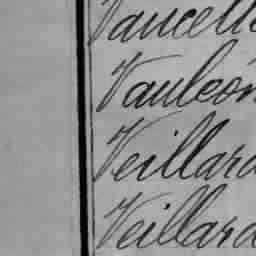 Vaucelle
Vauleón
Veillard
Veillard